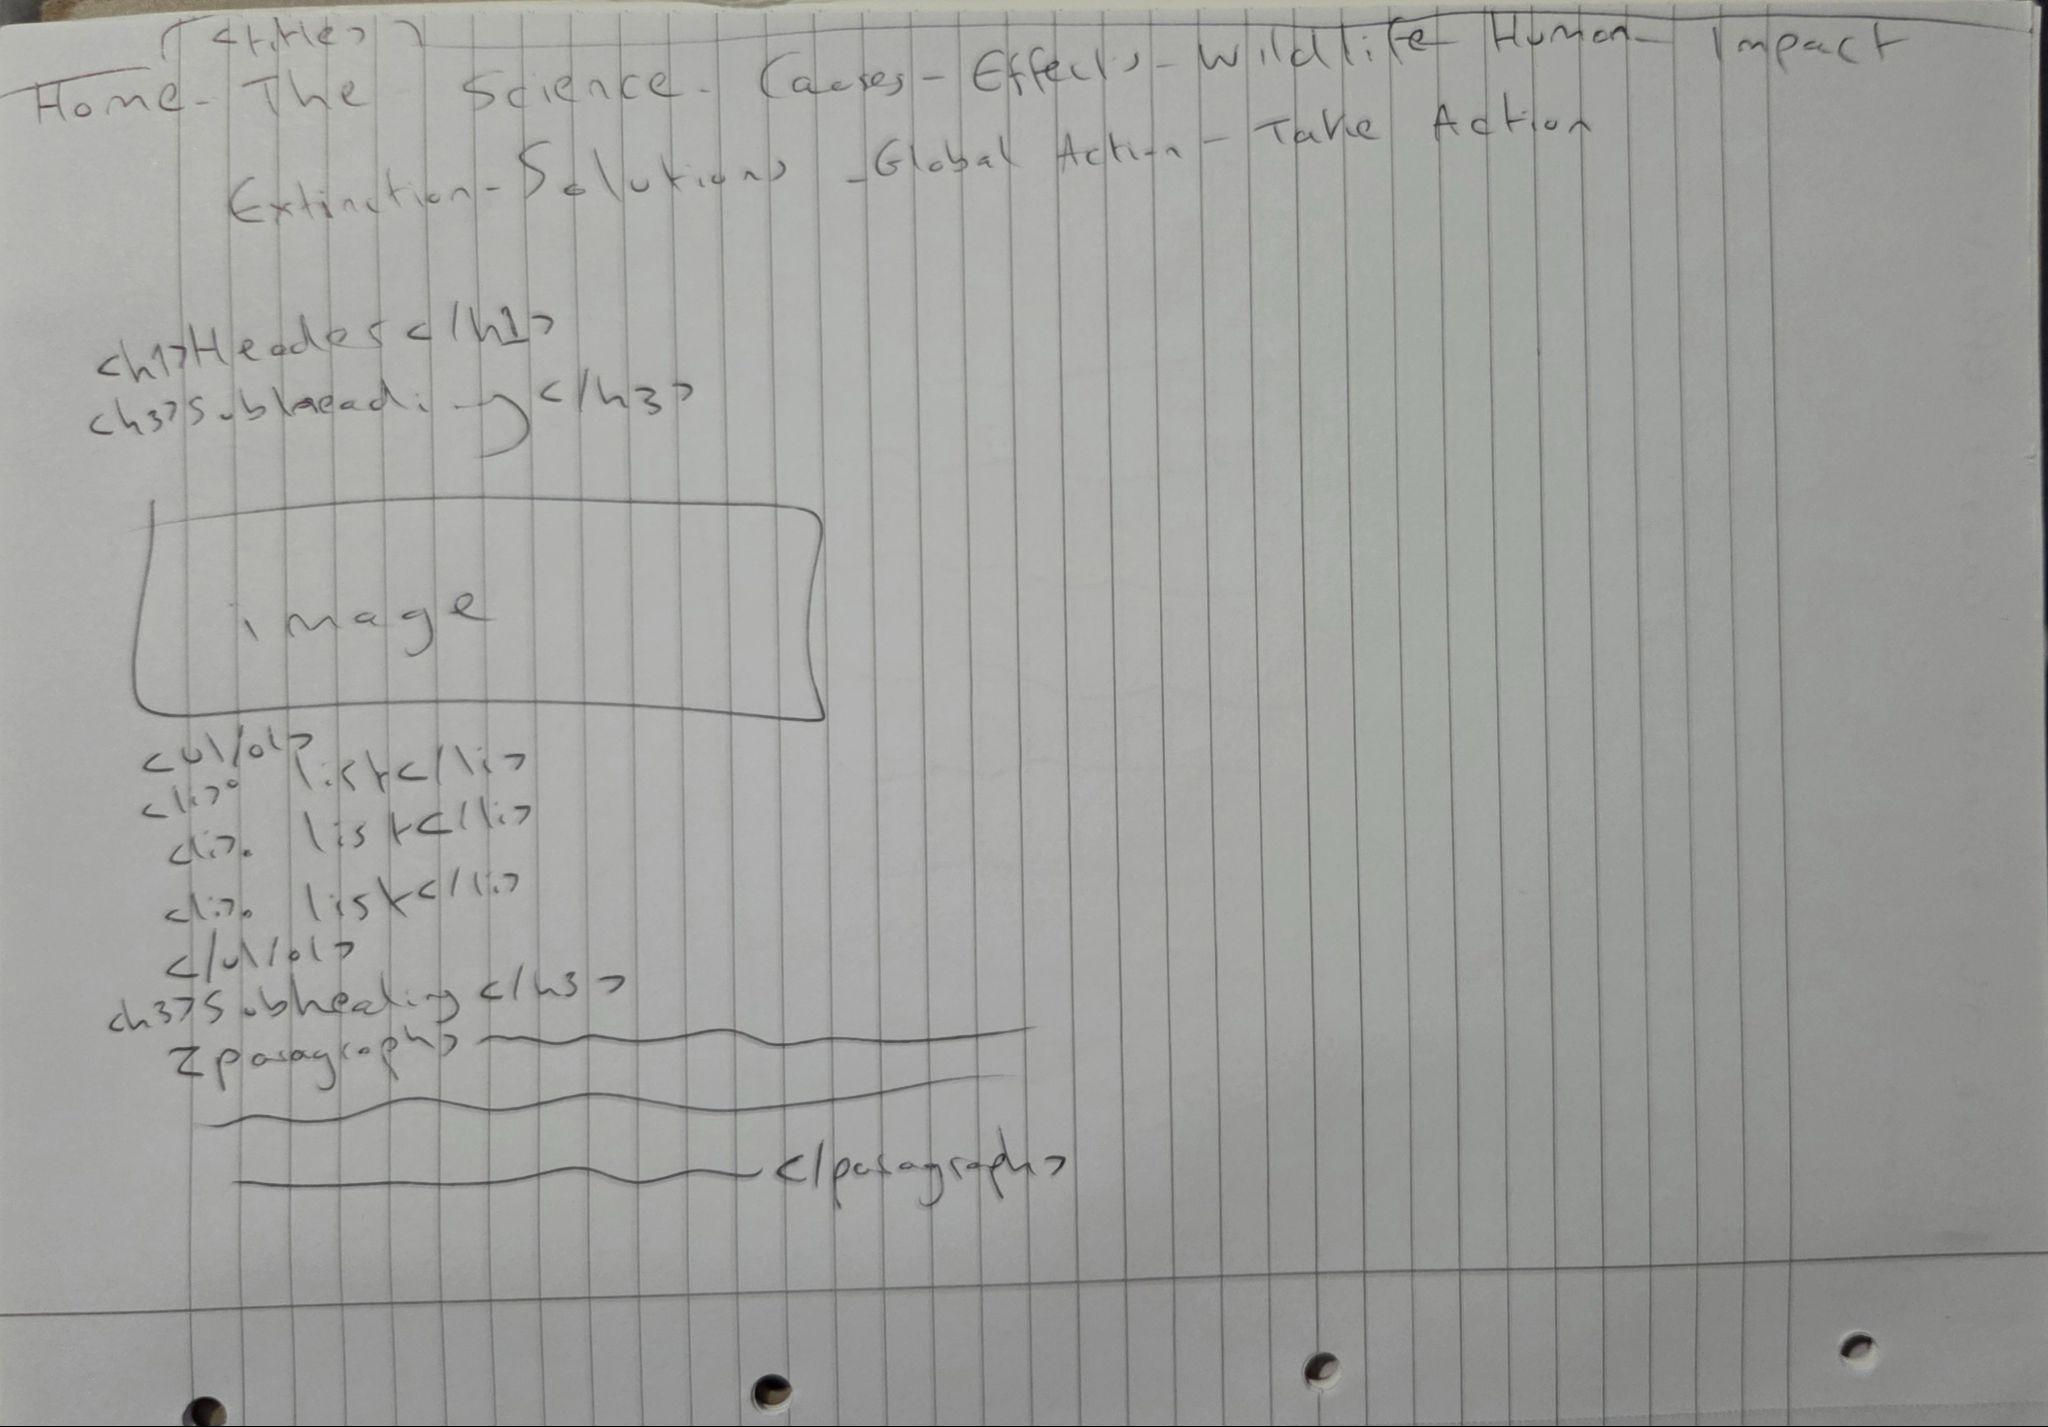 <title>
Home - The Science - Causes - Effects - Wildlife Human - Impact
Extinction - Solutions - Global Action - Take Action
<h1>Header</h1>
<h3>Subheading</h3>
image
<ul/ol>
<li>• list</li>
<li>• list</li>
<li>• list</li>
</ul/ol>
<h3>Subheading</h3>
<paragraph>
</paragraph>